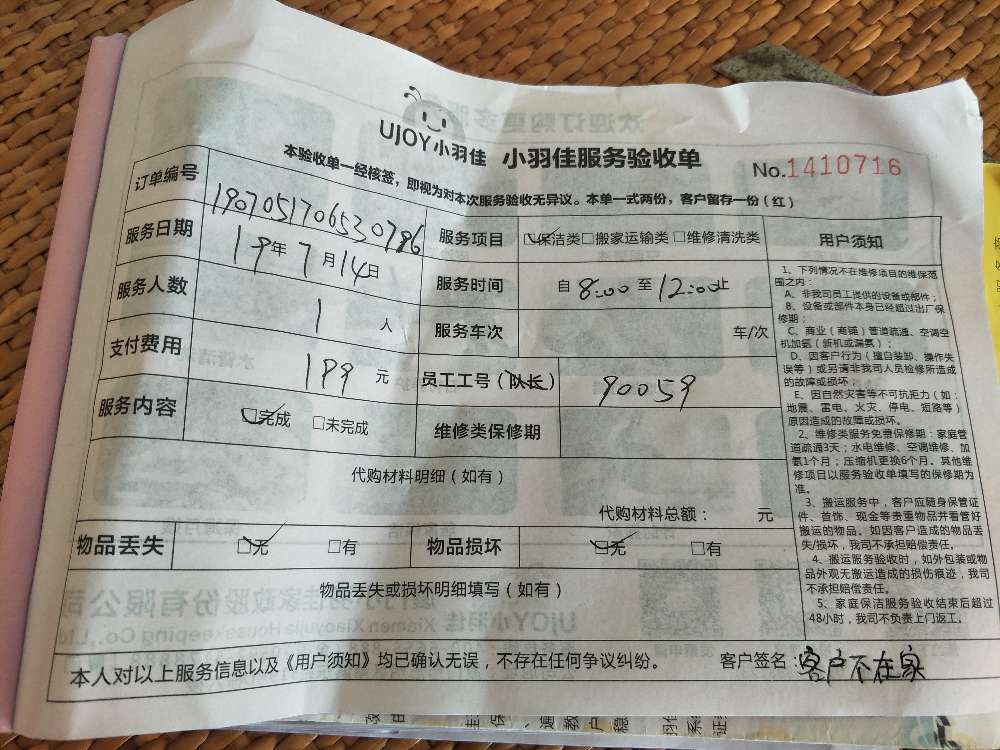 UJOY小羽佳 小羽佳服务验收单
No.1410716
本验收单一经核签，即视为对本次服务验收无异议。本单一式两份，客户留存一份（红）
订单编号 190705170653078​6
服务项目 保洁类 □搬家运输类 □维修清洗类
用户须知
服务日期 19年7月14日
服务时间 自8:00至12:00止
服务人数 1人
服务车次 车/次
支付费用 199元
员工工号（队长） 90059
服务内容 完成 □未完成
维修类保修期
代购材料明细（如有）
代购材料总额： 元
物品丢失 无 □有
物品损坏 无 □有
物品丢失或损坏明细填写（如有）
1、下列情况不在维修项目的维保范
围之内：
A、非我司员工提供的设备或部件；
B、设备或部件本身已经超过出厂保
修期；
C、商业（商铺）管道疏通、空调空
机加氨（新机或漏氨）；
D、因客户行为（擅自装卸、操作失
误等）或另请非我司人员检修所造成
的故障或损坏；
E、因自然灾害等不可抗拒力（如：
地震、雷电、火灾、停电、短路等）
原因造成的故障或损坏。
2、维修类服务免费保修期：家庭管
道疏通3天；水电维修、空调维修、加
氨1个月；压缩机更换6个月。其他维
修项目以服务验收单填写的保修期为
准。
3、搬运服务中，客户应随身保管证
件、首饰、现金等贵重物品并看管好
搬运的物品。如因客户造成的物品丢
失/损坏，我司不承担赔偿责任。
4、搬运服务验收时，如外包装或物
品外观无搬运造成的损伤痕迹，我司
不承担赔偿责任。
5、家庭保洁服务验收结束后超过
48小时，我司不负责上门返工。
本人对以上服务信息以及《用户须知》均已确认无误，不存在任何争议纠纷。 客户签名：客户不在家